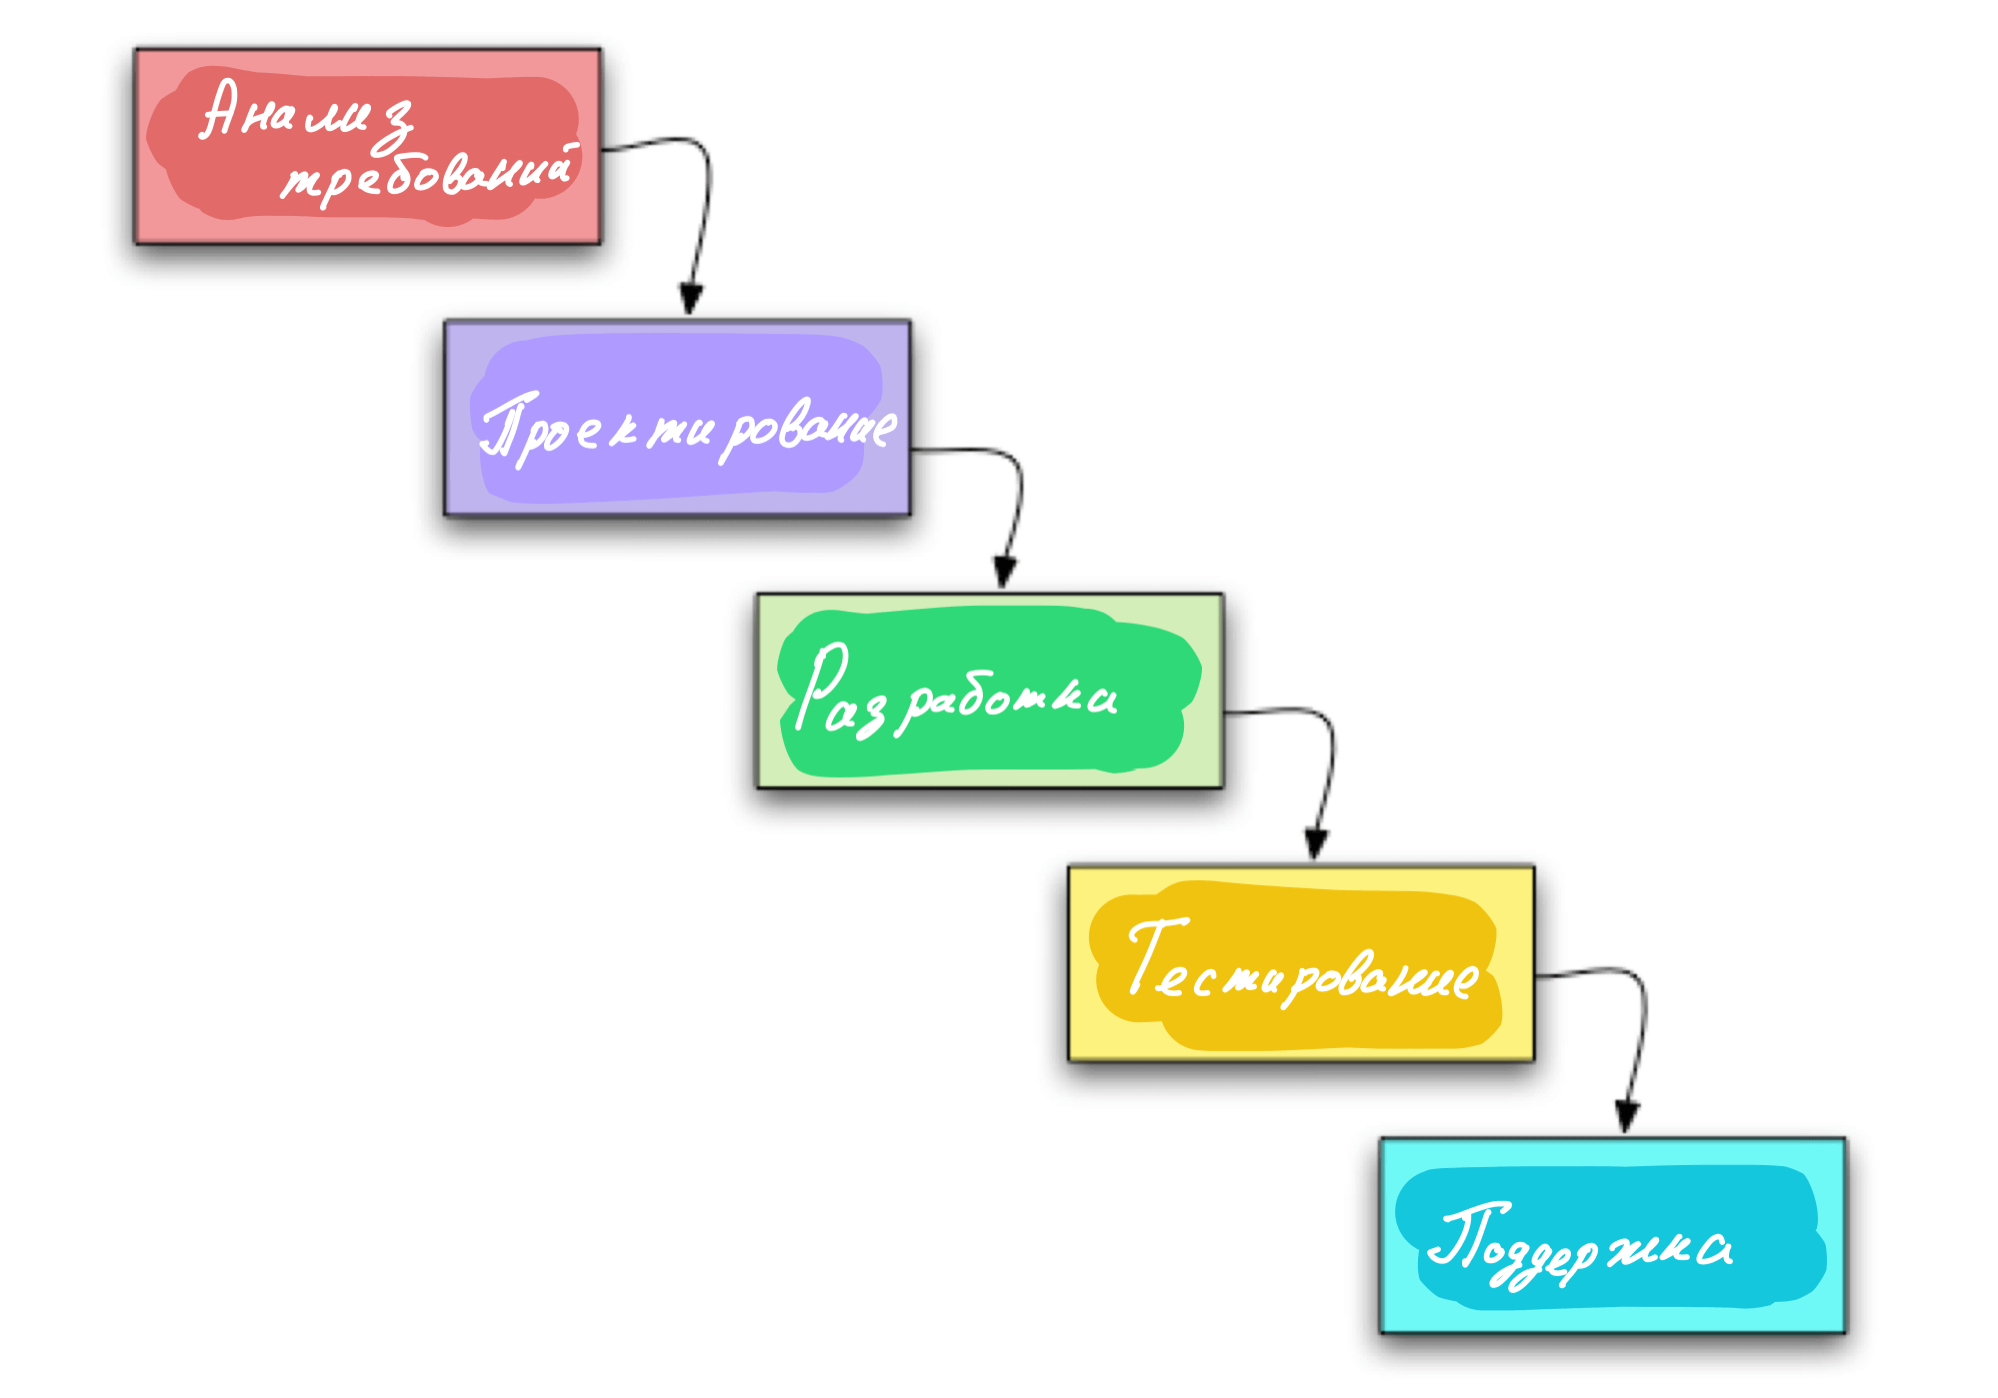 Анализ
требований
Проектирование
Разработка
Тестирование
Поддержка